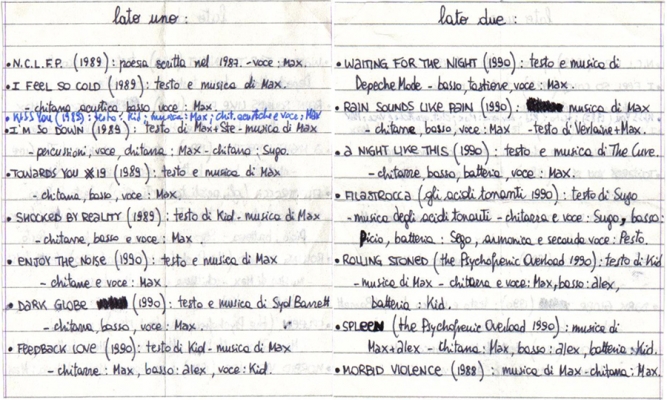 lato uno:
• N.C.L.F.P. (1989): poesia scritta nel 1987. - voce: Max.
• I FEEL SO COLD (1989): testo e musica di Max.
- chitarra acustica, basso, voce: Max.
• KISS YOU (1989): testo: Kid - musica: Max; chit. acustiche e voce: Max
• I'M SO DOWN (1989): testo di Max+Ste - musica di Max
- percussioni, voce, chitarra: Max - chitarra: Sugo.
• TOWARDS YOU #19 (1989): testo e musica di Max
- chitarra, basso, voce: Max.
• SHOCKED BY REALITY (1989): testo di Kid - musica di Max
- chitarre, basso e voce: Max.
• ENJOY THE NOISE (1990): testo e musica di Max
- chitarre e voce: Max.
• DARK GLOBE (1990): testo e musica di Syd Barrett.
- chitarra, basso, voce: Max.
• FEEDBACK LOVE (1990): testo di Kid - musica di Max
- chitarre: Max, basso: alex, voce: Kid.
lato due:
• WAITING FOR THE NIGHT (1990): testo e musica di
Depeche Mode - basso, tastiere, voce: Max.
• RAIN SOUNDS LIKE PAIN (1990): musica di Max
- chitarre, basso, voce: Max - testo di Verlaine+Max.
• A NIGHT LIKE THIS (1990): testo e musica di The Cure.
- chitarre, basso, batteria, voce: Max.
• FILASTROCCA (gli acidi tonanti 1990): testo di Sugo
- musica degli acidi tonanti - chitarra e voce: Sugo, basso:
Picio, batteria: Sego, armonica e seconda voce: Pesto.
• ROLLING STONED (the Psychofrenic Overload 1990): testo di Kid
- musica di Max - chitarra e voce: Max, basso: alex,
batteria: Kid.
• SPLEEN (the Psychofrenic Overload 1990): musica di
Max+alex - chitarra: Max, basso: alex, batteria: Kid.
• MORBID VIOLENCE (1988): musica di Max - chitarra: Max.